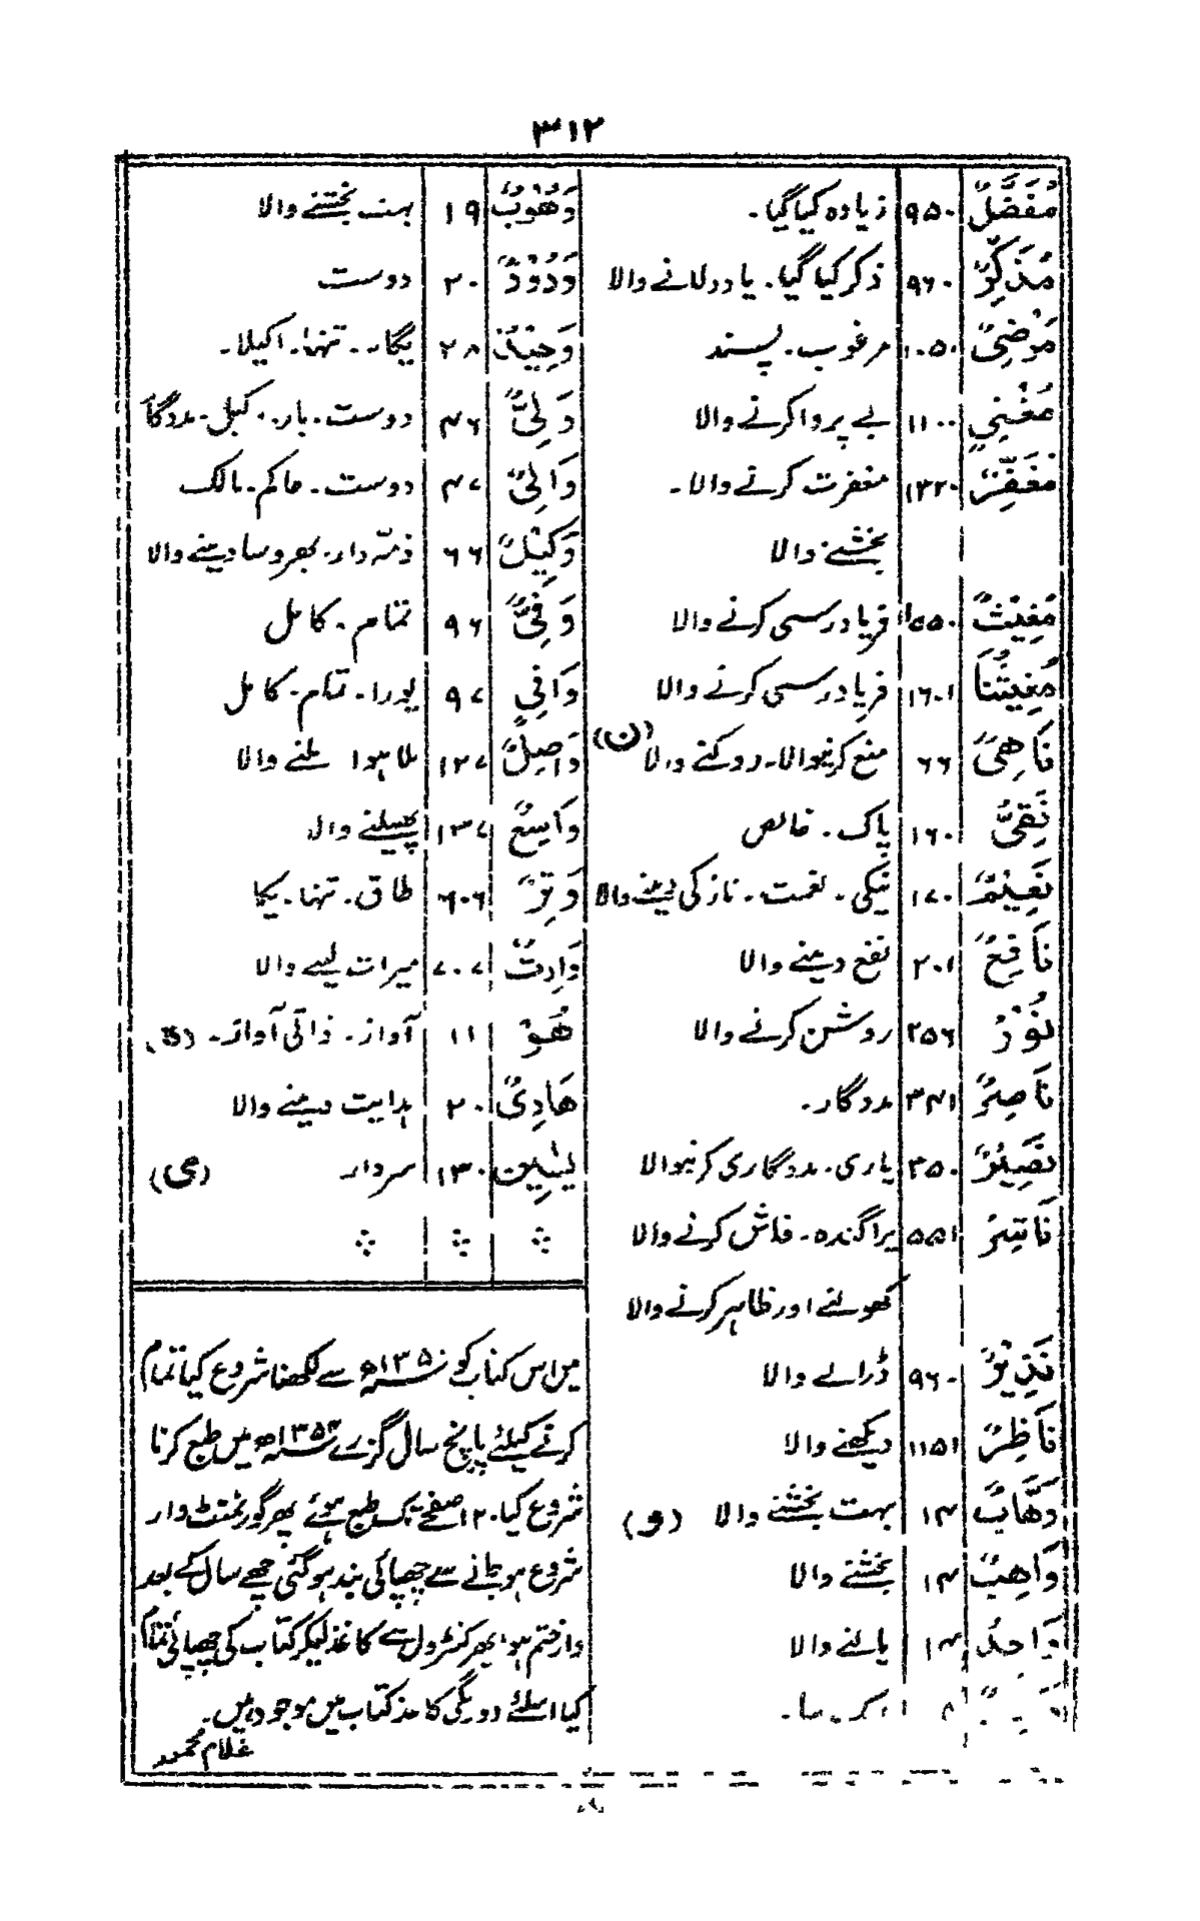 ۳۱۲
مُفَضَّلٌ ۹۵۰ زیادہ کیا گیا۔
مُذَکِّرٌ ۹۶۰ ذکر کیا گیا۔ یاد دلانے والا
مَرْضِیٌّ ۱۰۵۰ مرغوب۔ پسند
مُغْنِیٍ ۱۱۰۰ بے پروا کرنے والا
مُغَفِّرٌ ۱۳۲۰ مغفرت کرنے والا۔
بخشنے والا
مُغِیْثٌ ۱۵۵۰ فریاد رسی کرنے والا
مُغِیْثُنَا ۱۶۰۱ فریاد رسی کرنے والا
نَاهِیٌ ۶۶ منع کرنیوالا۔ روکنے والا (ن)
نَقِیٌّ ۱۶۰ پاک۔ خالص
نَعِیْمٌ ۱۷۰ نیکی۔ نعمت۔ نازکی دینے والا
نَافِعٌ ۲۰۱ نفع دینے والا
نُوْرٌ ۲۵۶ روشن کرنے والا
نَاصِرٌ ۳۴۱ مددگار۔
نَصِیْرٌ ۳۵۰ یاری۔ مددگاری کرنیوالا
نَاشِرٌ ۵۵۱ پراگندہ۔ فاش کرنے والا
کھولنے اور ظاہر کرنے والا
نَذِیْرٌ ۹۶۰ ڈرانے والا
نَاظِرٌ ۱۱۵۱ دیکھنے والا
وَهَّابٌ ۱۴ بہت بخشنے والا (و)
وَاهِبٌ ۱۴ بخشنے والا
وَاجِدٌ ۱۴ پالنے والا
وَهُوْبٌ ۱۹ بہت بخشنے والا
وَدُوْدٌ ۲۰ دوست
وَحِیْدٌ ۲۸ یگانہ۔ تنہا۔ اکیلا۔
وَلِیٌّ ۴۶ دوست۔ یار۔ کیل۔ مددگار
وَالِیٌ ۴۷ دوست۔ حاکم۔ مالک
وَکِیْلٌ ۶۶ ذمّہ دار۔ بھروسا دینے والا
وَفِیٌّ ۹۶ تمام۔ کامل
وَافِیٍ ۹۷ پورا۔ تمام۔ کامل
وَاصِلٌ ۱۲۷ ملا ہوا ملنے والا
وَاسِعٌ ۱۳۷ پھیلنے والا
وَتِرٌ ۶۰۶ طاق۔ تنہا۔ یکا
وَارِثٌ ۷۰۷ میراث لینے والا
هُوَ ۱۱ آواز۔ ذاتی آواز۔ (ہ)
هَادِیٌ ۲۰ ہدایت دینے والا
یٰسٓیْن ۱۳۰ سردار (ی)
میں اس کتاب کو ۱۳۵۰ھ سے لکھنا شروع کیا تمام
کرنے کیلئے پانچ سال گزرے ۱۳۵۴ھ میں طبع کرنا
شروع کیا۔ ۱۲۰ صفحے تک طبع ہوئے پھر گورنمنٹ وار
شروع ہو جانے سے چھپائی بند ہو گئی چھے سال کے بعد
وار ختم ہوا پھر کنٹرول سے کاغذ لیکر کتاب کی چھپائی تمام
کیا اسلئے دو رنگی کاغذ کتاب میں موجود ہیں۔
غلام محمود